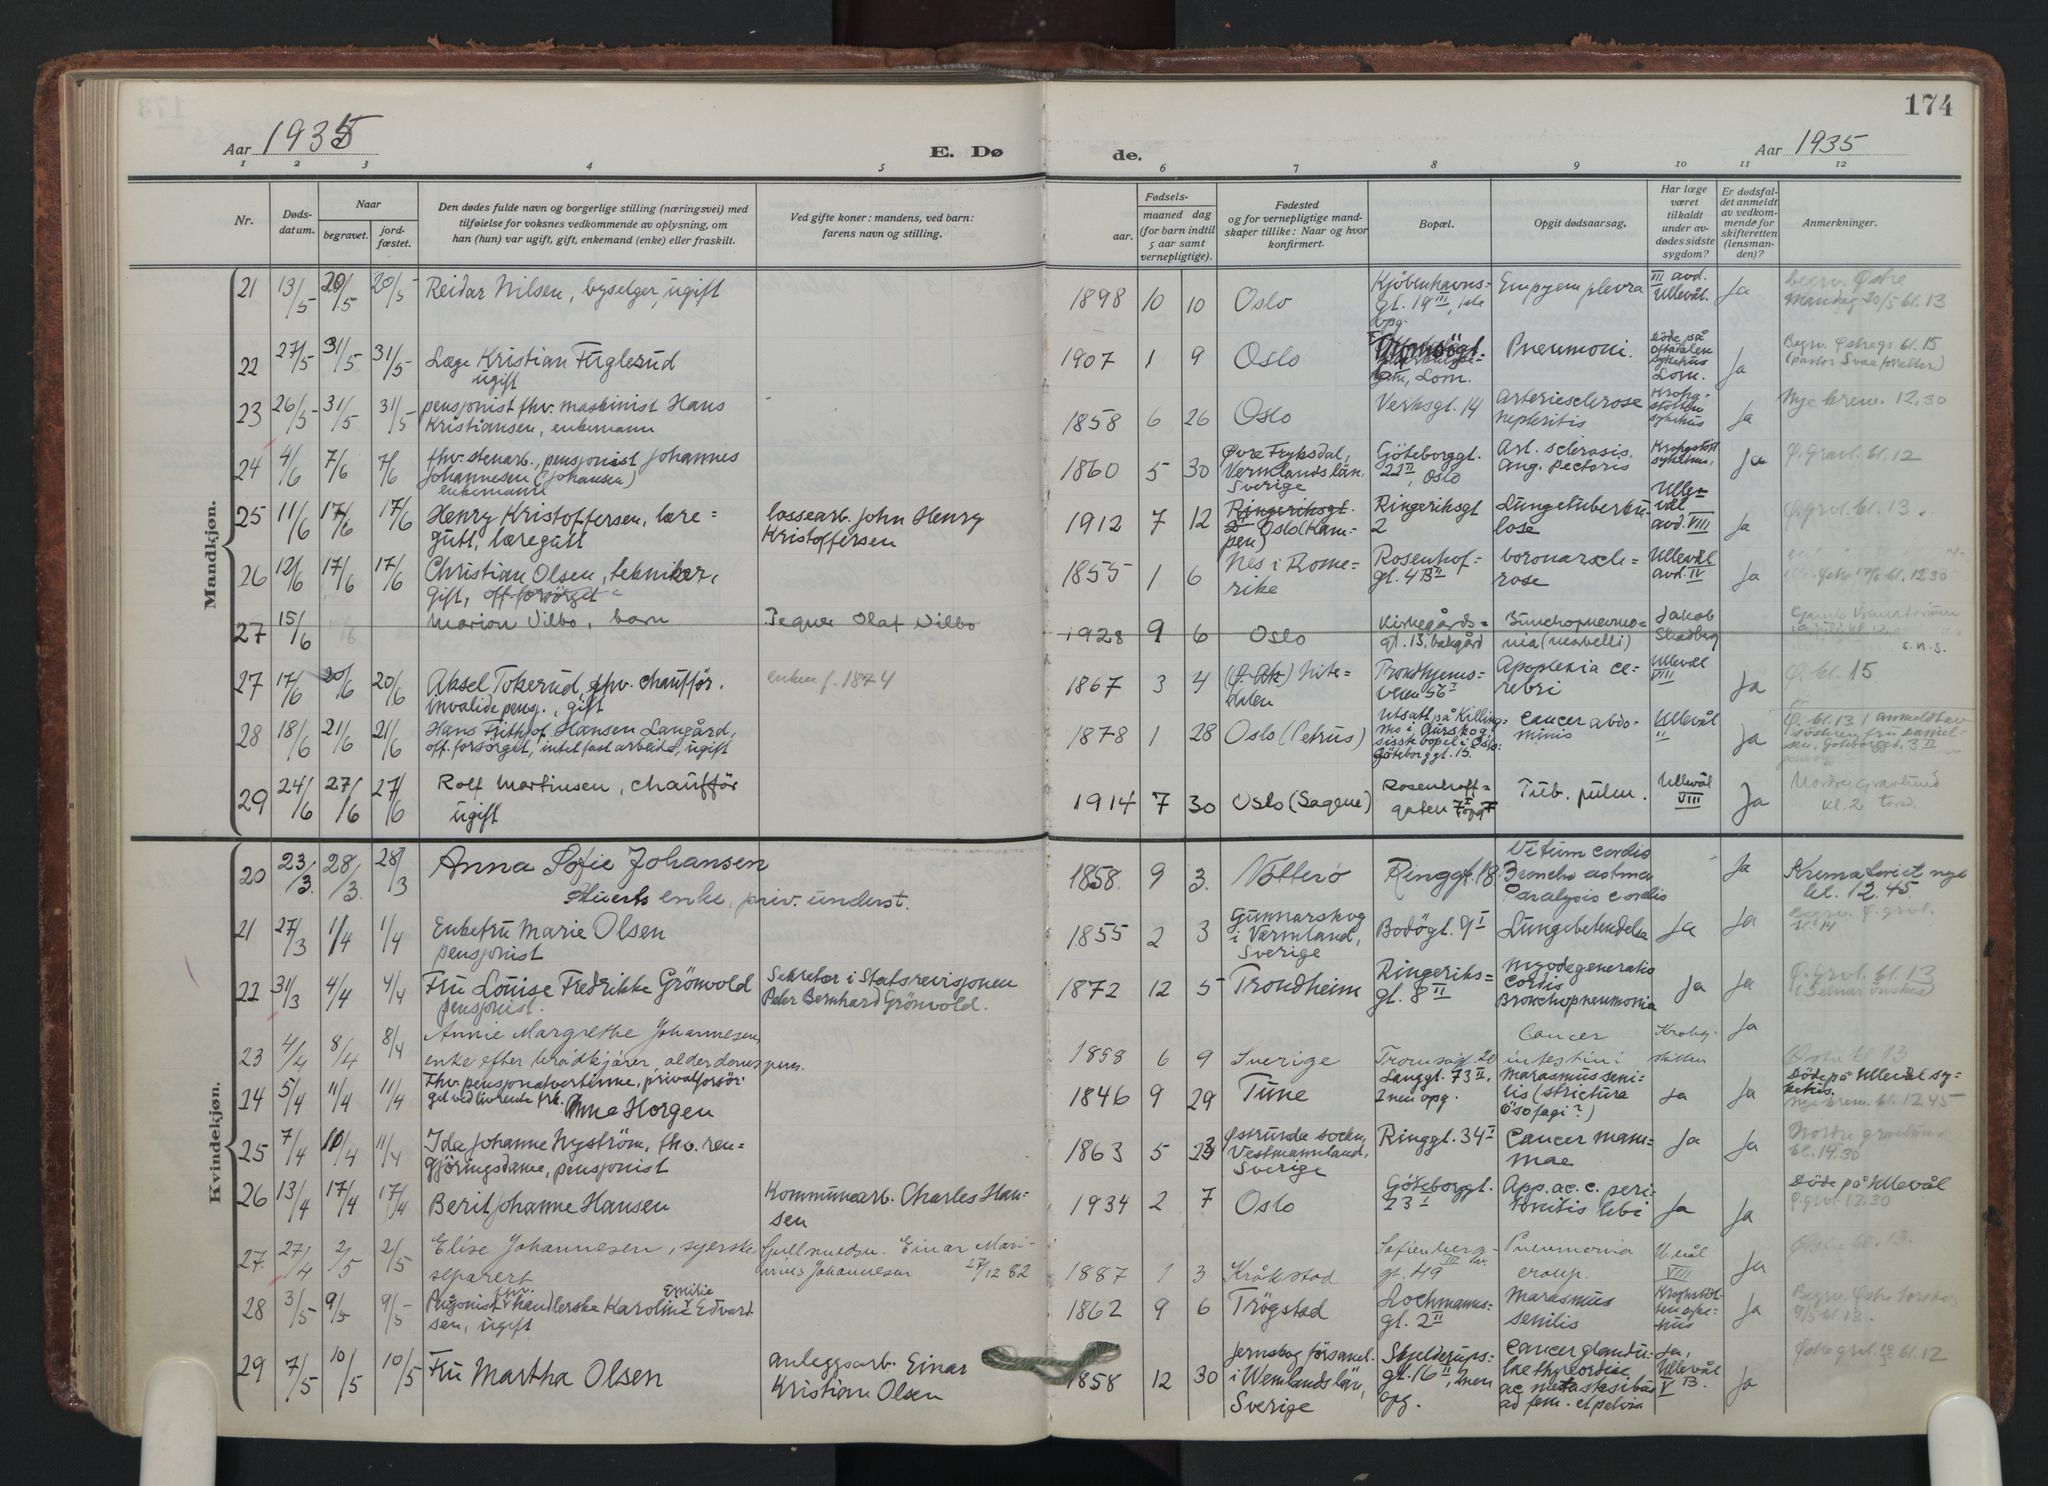 174
Aar 1935
E. Dø
de.
Aar 1935
1 2 3 4 5 6 7 8 9 10 11 12
Nr.
Døds-
datum.
Naar
begravet.
jord-
fæstet.
Den dødes fulde navn og borgerlige stilling (næringsvei) med
tilføielse for voksnes vedkommende av oplysning, om
han (hun) var ugift, gift, enkemand (enke) eller fraskilt.
Ved gifte koner: mandens, ved barn:
farens navn og stilling.
Fødsels-
aar.
maaned dag
(for barn indtil
5 aar samt
vernepligtige).
Fødested
og for vernepligtige mand-
skaper tillike: Naar og hvor
konfirmert.
Bopæl.
Opgit dødsaarsag.
Har læge
været
tilkaldt
under av-
dødes sidste
sygdom?
Er dødsfal-
det anmeldt
av vedkom-
mende for
skifteretten
(lensman-
den)?
Anmerkninger.
Mandkjøn.
21 13/5 20/5 20/5 Reidar Nilsen, byselger, ugift 1898 10 10 Oslo Kjöbenhavns-
gt. 19 III, 1ste
opg. Empyem plevra III avd.
Ullevål. Ja begrv. Østre
Mandag 20/5 kl. 13
22 27/5 31/5 31/5 Læge Kristian Fuglerud
ugift 1907 1 9 Oslo Lom. Pneumoni. Döde på
sykehus
Lom. Ja Begrv. Østregr. kl. 15
(pastor Svae forretter)
23 26/5 31/5 31/5 pensjonist fhv. maskinist Hans
Kristiansen, enkemann 1858 6 26 Oslo Verksgt. 14 Arteriesclerose
nephritis Krohg-
stötten
sykehus Ja Nye krem. 12.30
24 4/6 7/6 7/6 fhv. stenarb., pensjonist Johannes
Johannesen (Johansen)
enkemann 1860 5 30 Övre Fryksdal,
Vermlands län,
Sverige Göteborggt.
25 II, Oslo Art. sclerosis.
Ang. pectoris Krohgstött.
sykehus. Ja Ø. Gravl. kl. 12
25 11/6 17/6 17/6 Henry Kristoffersen, lære-
gutt, læregutt lossearb. John Henry
Kristoffersen 1912 7 12 Ringeriksgt.
2 Oslo (Kam-
pen) Ringeriksgt
2 Lungetuberku-
lose Ulle-
vål
avd. VIII Ja Ø. grvl. kl. 13.
26 12/6 17/6 17/6 Christian Olsen, tekniker,
gift, off. forsörget 1855 1 6 Nes i Rome-
rike Rosenhof-
gt. 4B II Coronarscle-
rose Ullevål
avd. IV Ja Østre 17/6 kl. 12.30
27 15/6 Marion Vilbo, barn Tegner Olaf Vilbo 1928 9 6 Oslo Kirkegårds-
gt. 13, bakgård Bunchopneumo-
nia (morbelli) Jakob
Skadberg Gamle Krematorium
s.n.s.
27 17/6 20/6 20/6 Aksel Tokerud, fhv. chaufför.
Invalidepensj., gift enken f. 1874 1867 3 4 (Ø. Ak) Nite-
dalen Trondhjems-
veien 56 I Apoplexia ce-
rebri Ullevål
VIII Ja Ø. kl. 15
28 18/6 21/6 21/6 Hans Frithjof Hansen Langård,
off. forsörget, intet fast arbeide, ugift 1878 1 28 Oslo (Petrus) Utsatt på Killing-
mo i Aurskog,
sisste bopel i Oslo:
Göteborggt. 15. Cancer abdo-
minis Ullevål
II Ja Ø. kl. 13. / anmeldt av
søsteren fru Daniel-
sen, Göteborggt. 3 II
29 24/6 27/6 27/6 Rolf Martinsen, chaufför
ugift 1914 7 30 Oslo (Sagene) Rosenhoff-
gaten 7 I opg. Tub. pulm. Ullevål
VIII Ja Nordre gravlund
kl. 2 torsd.
Kvindekjøn.
20 23/3. 28/3. 28/3 Anna Sofie Johansen
enke, priv. underst. 1858. 9 3. Nötterö Ringgt. 18. Vitium cordis
Broncho astma
Paralysis cordis Ja Krematoriet nye
kl. 12.45.
21 27/3 1/4 1/4 Enkefru Marie Olsen
pensjonist 1855 2 3 Gunnarskog
i Värmland,
Sverige Bodögt. 9 I Lungebetendelse Ja Ja Begrv. Ø. grvl.
kl. 14
22 31/3 4/4 4/4 Fru Louise Fredrikke Grönvold
pensjonist. Sekretær i Statsrevisjonen
Peter Bernhard Grönvold. 1872 12 5 Trondheim Ringeriks-
gt. 8 II Myodegeneratio
cordis
Bronchopneumonia Ja Ja Ø. Grvl. kl. 13
23 4/4 8/4 8/4 Annie Margrethe Johannesen,
enke efter brödkjører, alderdomspens. 1858 6 9 Sverige Tromsøgt. 20 Cancer
intestini Krohg-
stötten Ja Østre kl. 13
24 5/4 11/4 11/4 Fhv. pensjonatvertinne, privatforsör-
get ved livrente frk. Anne Horgen 1846 9 29 Tune Langgt. 73 II,
2nen opg. Marasmus seni-
lis (strictura
ösofagi?) Ja Ja Döde på Ullevål sy-
kehus.
Nye krem. kl. 12.45
25 7/4 11/4 11/4 Ida Johanne Nyström, fhv. ren-
gjöringsdame, pensjonist 1863 5 23 Østrunda socken,
Vestmannland,
Sverige Ringgt. 34 I Cancer mam-
mae Ja Ja Nordre gravlund
kl. 14.30
26 13/4 17/4 17/4 Berit Johanne Hansen Kommunearb. Charles Han-
sen 1934 2 7 Oslo Göteborggt.
23 I App. ac. c. peri-
tonitis libi Ja Ja Döde på Ullevål
Ø. grv. 12.30
27. 27/4 2/5 2/5 Elise Johannesen, syerske
separert Gullsmedsv. Einar Mari-
nius Johannesen 27/12 82 1887 1 3 Kråkstad Sofienberg-
gt. 49 III Pneumonia
croup. U.vål
VIII Ja Østre kl. 13.
28 3/5 9/5 9/5 Pensjonist fhv. handlerske Karoline Emilie Edvard-
sen, ugift 1862 9 6 Trögstad Lochmanns-
gt. 2 II Marasmus
senilis Krohgstöt-
ten syke-
hus Ja Begrv. Østre torsdag
9/5 kl. 13.
29 7/5 10/5 10/5 Fru Martha Olsen Anleggsarb. Einar
Kristian Olsen 1858 12 30 Jernskog församl.
i Wermlands län,
Sverige Skjelderups-
gt. 16 II, inen
opg. Cancer glandu-
lae thyreoidiae
ac metastasibus
ad fem. et pelvis Ja,
Ullevål
V B. Ja Østre grvl. 10/5 kl. 12